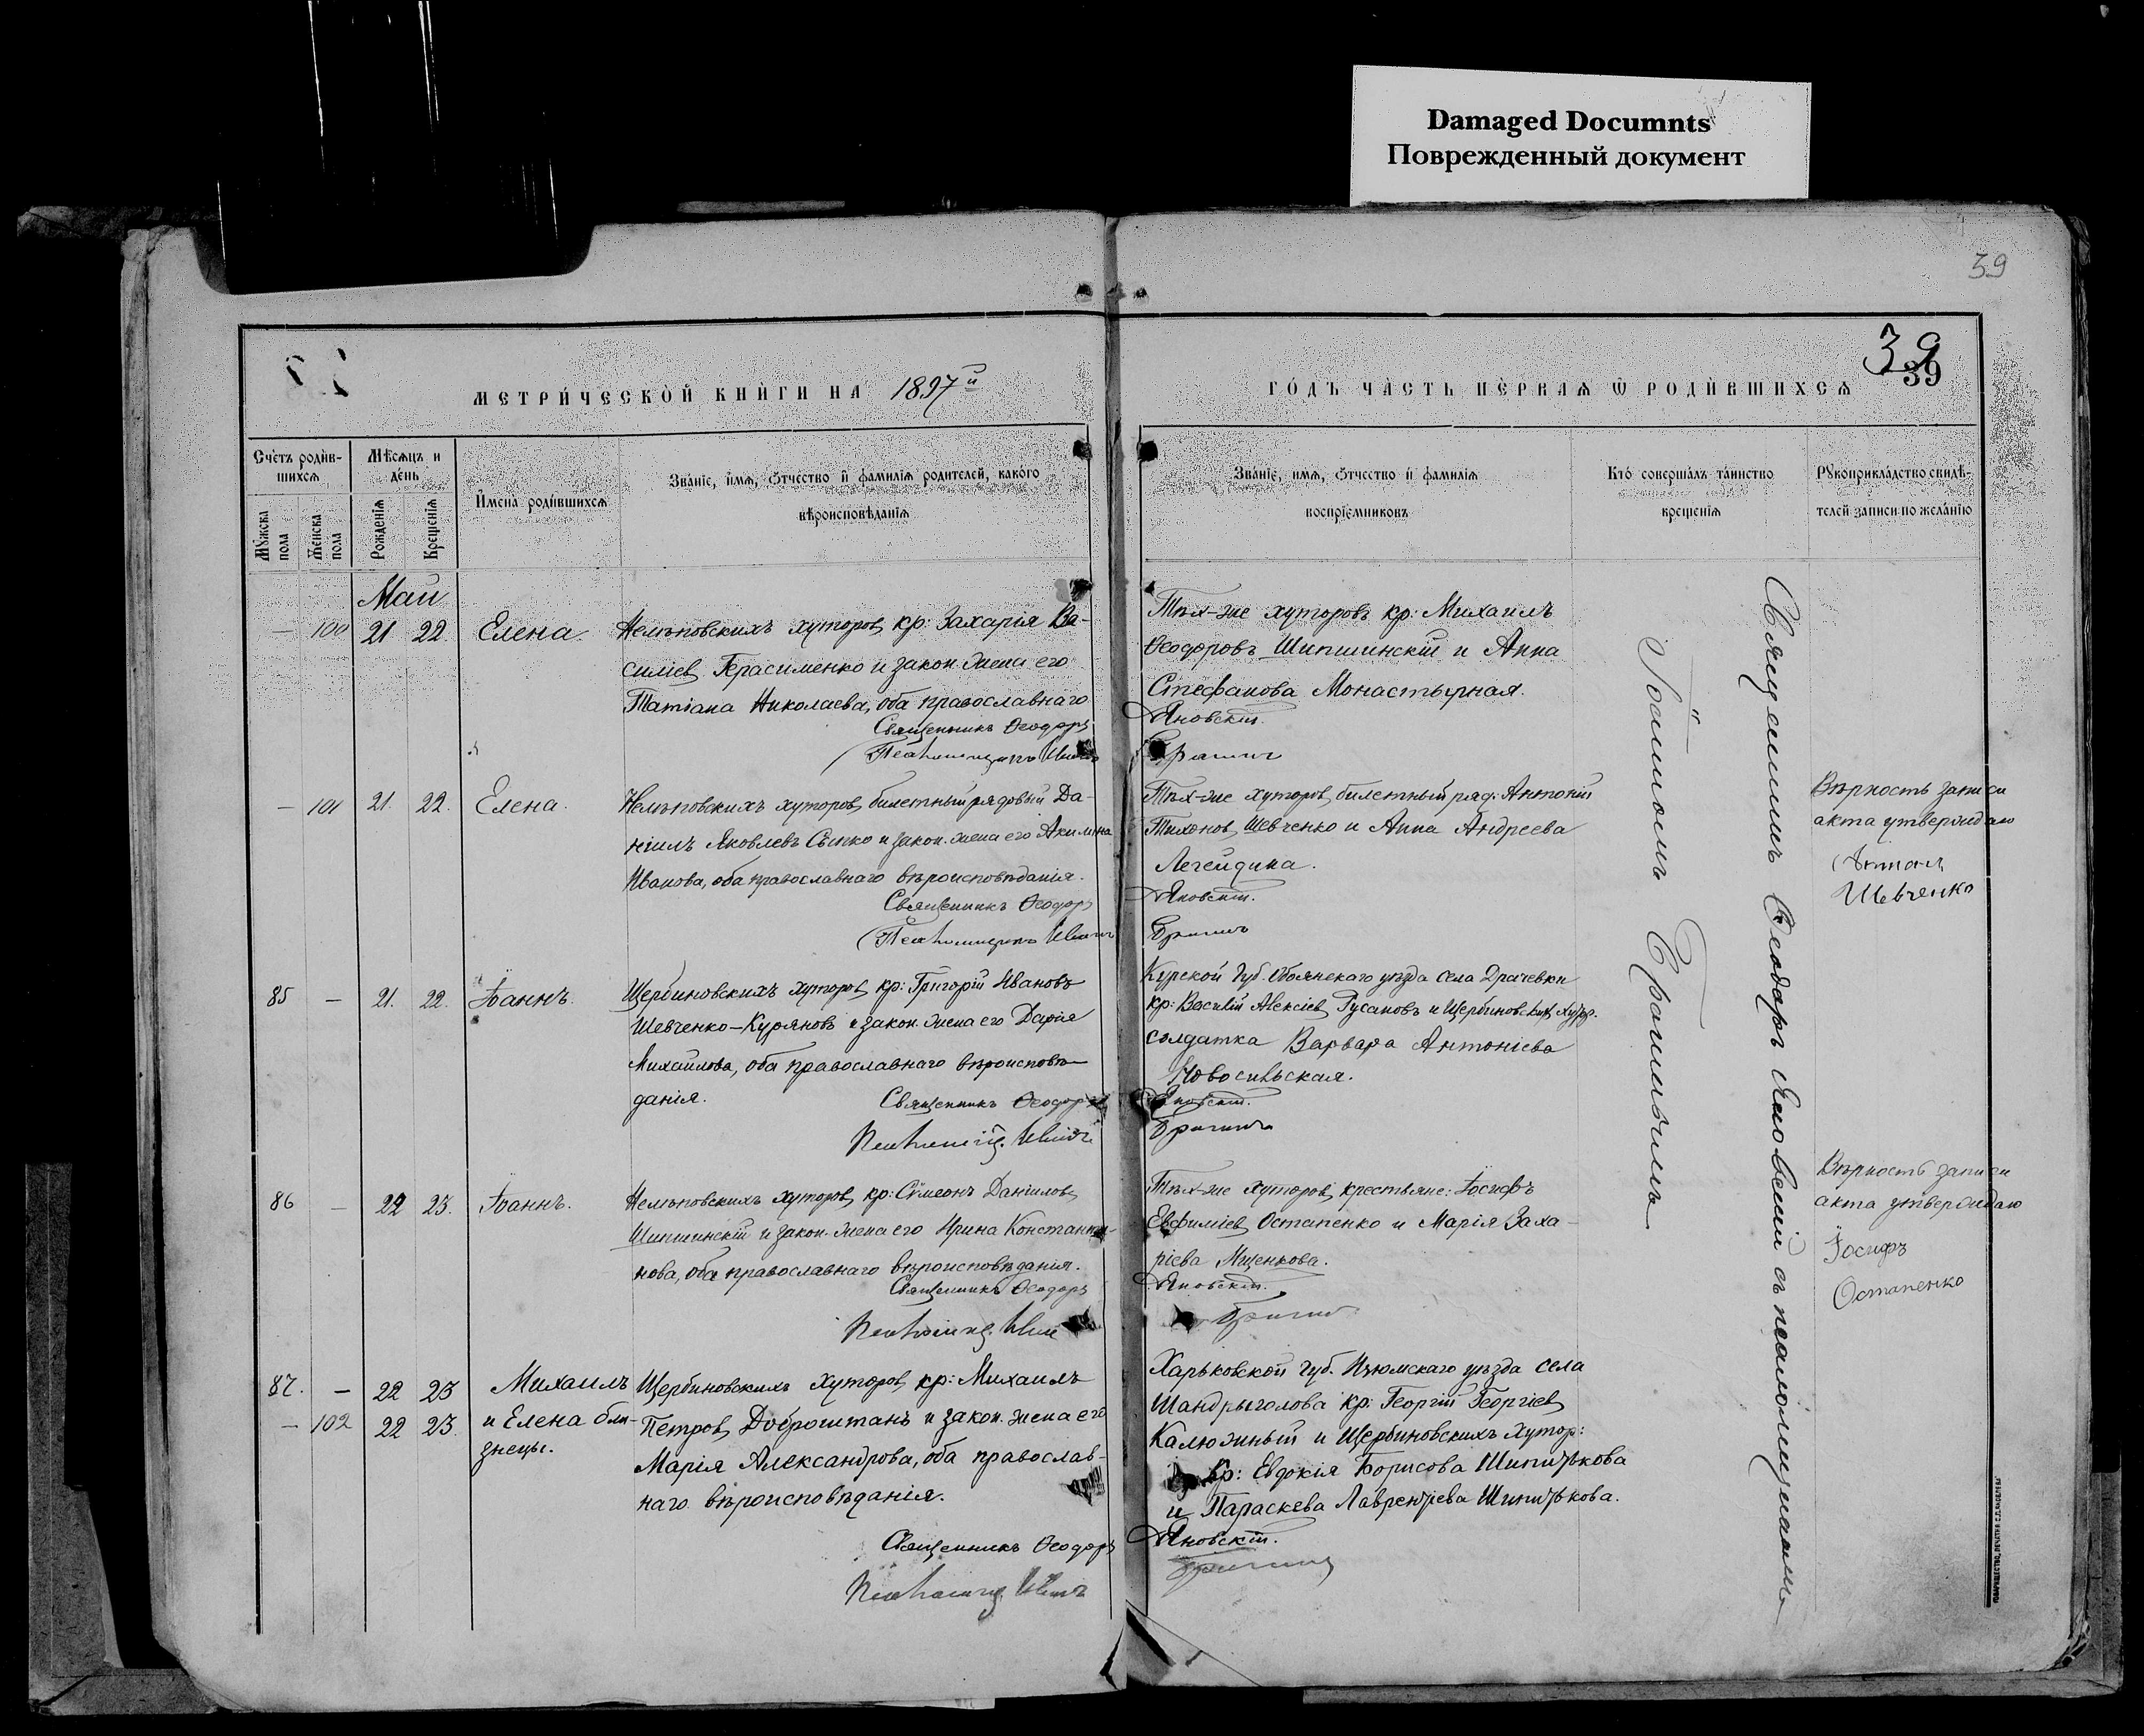 Damaged Documnts
Поврежденный документ
39
39
39
МЕТРИ́ЧЕСКОЙ КНИ́ГИ НА 1897й
ГО́ДЪ ЧА́СТЬ ПЕ́РВАѦ Ѡ РОДИ́ВШИХСѦ
Сче́тъ роди́в-
шихсѧ
Мꙋ́жеска пола
Же́нска пола
Мѣ́сѧцъ и
де́нь
Рожденїѧ
Крещенїѧ
И҆мена̀ роди́вшихсѧ
Зва́нїе, и҆́мѧ, ѻ҆́тчество и҆ фами́лїѧ роди́телей, како́го
вѣроисповѣ́данїѧ
Зва́нїе, и҆́мѧ, ѻ҆́тчество и҆ фами́лїѧ
воспрїе́мниковъ
Кто̀ соверша́лъ та́инство
креще́нїѧ
Рꙋкоприкла́дство свидѣ́-
телей за́писи по жела́нїю
Май
— 100 21 22 Елена.
Нелѣповскихъ хуторов кр: Захарія Ва-
силіев Герасименко и закон. жена его
Татіана Николаева, оба православнаго
Священникъ Ѳеодоръ
Яновскій.
Тѣх-же хуторовъ кр: Михаилъ
Ѳеодоровъ Шипшинскій и Анна
Стефанова Монастырная.
— 101 21. 22. Елена.
Нелѣповскихъ хуторов, билетный рядовый Да-
ніилъ Яковлевъ Сыпко и закон. жена его Акилина
Иванова, оба православнаго вѣроисповѣданія.
Священникъ Ѳеодоръ
Яновскій.
Тѣх-же хуторов, билетный ряд: Антоній
Тихонов Шевченко и Анна Андреева
Легейдина.
Вѣрность записи
акта утверждаю
Антон
Шевченко
85 — 21. 22. Іоаннъ.
Щербиновскихъ хуторов, кр: Григорій Ивановъ
Шевченко-Куряновъ и закон. жена его Дарія
Михаилова, оба православнаго вѣроисповѣ-
данія.
Священникъ Ѳеодоръ
Яновскій.
Курской губ. Обоянскаго уѣзда села Драчевки
кр: Василій Алексіев Русановъ и Щербиновских хутор.
солдатка Варвара Антоніева
Новосильская.
86 — 22 23. Іоаннъ.
Нелѣповскихъ хуторов, кр: Сѵмеонъ Даніилов
Шипшинскій и закон. жена его Ирина Константи-
нова, оба православнаго вѣроисповѣданія.
Священникъ Ѳеодоръ
Яновскій.
Тѣх-же хуторов, крестьяне: Іосифъ
Евфиміев Остапенко и Марія Заха-
ріева Мищенкова.
Вѣрность записи
акта утверждаю
Іосифъ
Остапенко
87. — 22 23 Михаилъ
— 102 22 23. и Елена бли-
знецы.
Щербиновскихъ хуторов, кр: Михаилъ
Петров Доброштанъ и закон. жена его
Марія Александрова, оба православ-
наго вѣроисповѣданія.
Священникъ Ѳеодоръ
Яновскій.
Харьковской губ. Изюмскаго уѣзда села
Шандрыголова кр: Георгій Георгіев
Калюжный и Щербиновскихъ хутор:
кр: Евдокія Борисова Шипитькова
и Параскева Лаврентіева Шипитькова.
Священникъ Ѳеодоръ Яновскій съ псаломщикомъ